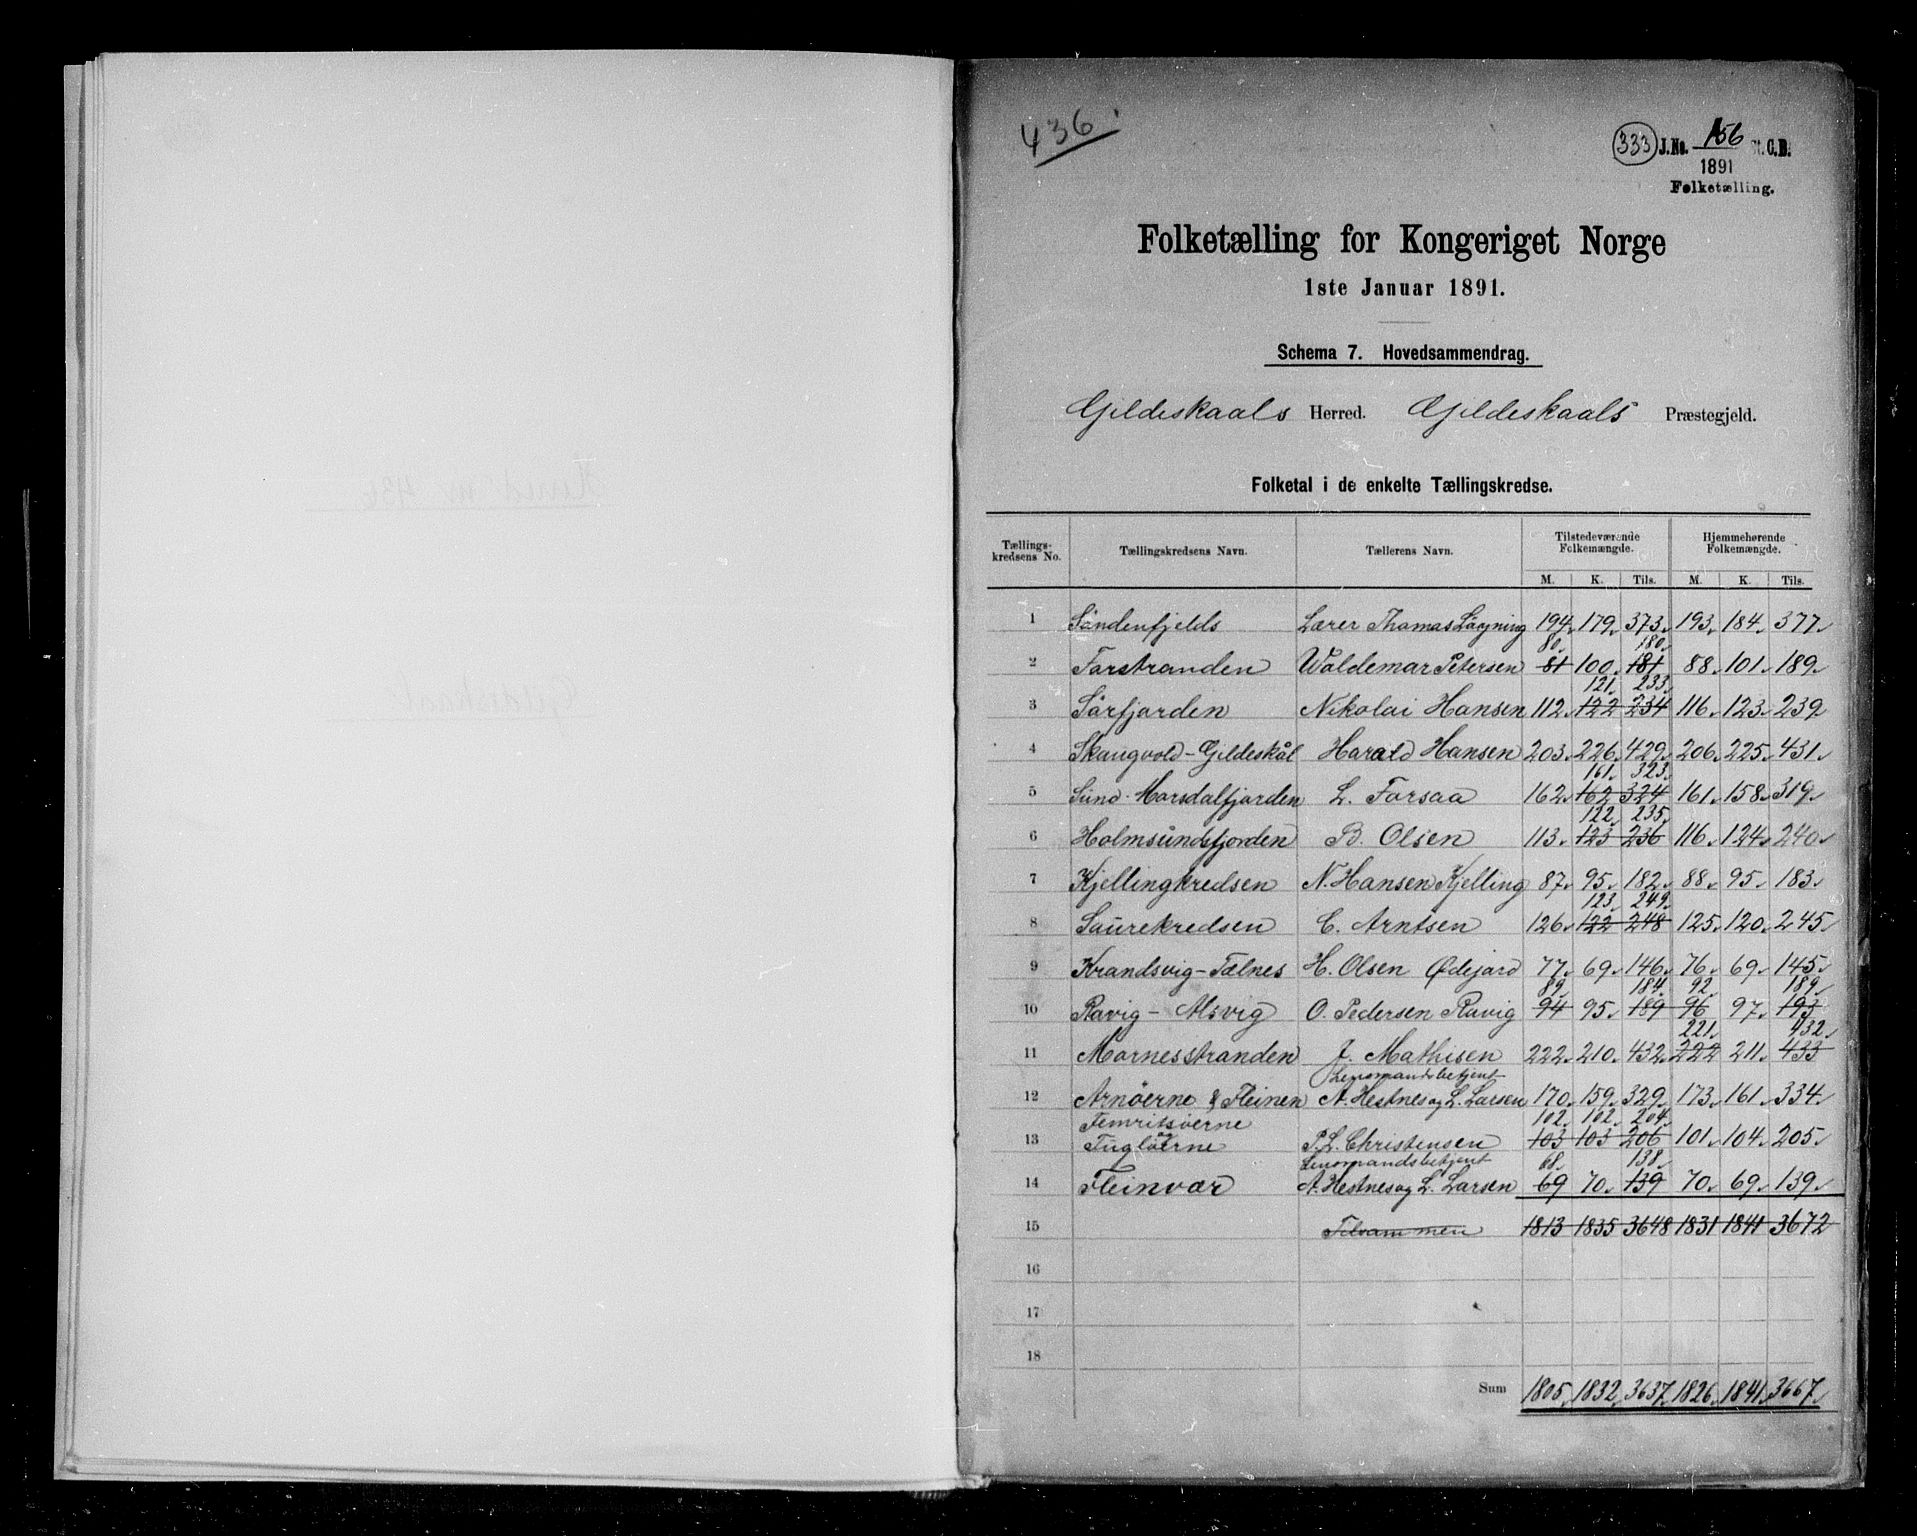 436
333 J.No. 156 St. C.B.
1891
Folketælling.
Folketælling for Kongeriget Norge
1ste Januar 1891.
Schema 7. Hovedsammendrag.
Gildeskaals Herred. Gildeskaals Præstegjeld.
Folketal i de enkelte Tællingskredse.
Tællings-kredsens No. Tællingskredsens Navn. Tællerens Navn. Tilstedeværende Folkemængde. Hjemmehørende Folkemængde.
M. K. Tils. M. K. Tils.
1 Söndenfjelds Lærer Thomas Lögning 194 179 373 193 184 377
80 180
2 Forstranden Waldemar Petersen 81 100 181 88 101 189
121 233
3 Sörfjorden Nikolai Hansen 112 122 234 116 123 239
4 Skaugvold-Gildeskål Harald Hansen 203 226 429 206 225 431
161 323
5 Sund-Morsdalfjorden L. Forsaa 162 162 324 161 158 319
122 235
6 Holmsundsfjorden B. Olsen 113 123 236 116 124 240
7 Kjellingkredsen N. Hansen Kjelling 87 95 182 88 95 183
123 249
8 Saurekredsen C. Arntsen 126 122 248 125 120 245
9 Krandsvig-Tælnes H. Olsen Ødejord 77 69 146 76 69 145
89 184 92 189
10 Ravig - Alsvig O. Pedersen Ravig 94 95 189 96 97 193
221 432
11 Mornesstranden J. Mathisen 222 210 432 222 211 433
Lensmandsbetjent
12 Arnöerne & Fleinen A. Hestnes og L. Larsen 170 159 329 173 161 334
Femritsöerne 102 102 204
og
13 Fuglöerne P.L. Christensen 103 103 206 101 104 205
Lensmandsbetjent 68 138
14 Fleinvær A. Hestnes og L. Larsen 69 70 139 70 69 139
15 Tilsammen 1813 1835 3648 1831 1841 3672
16
17
18
Sum 1805 1832 3637 1826 1841 3667